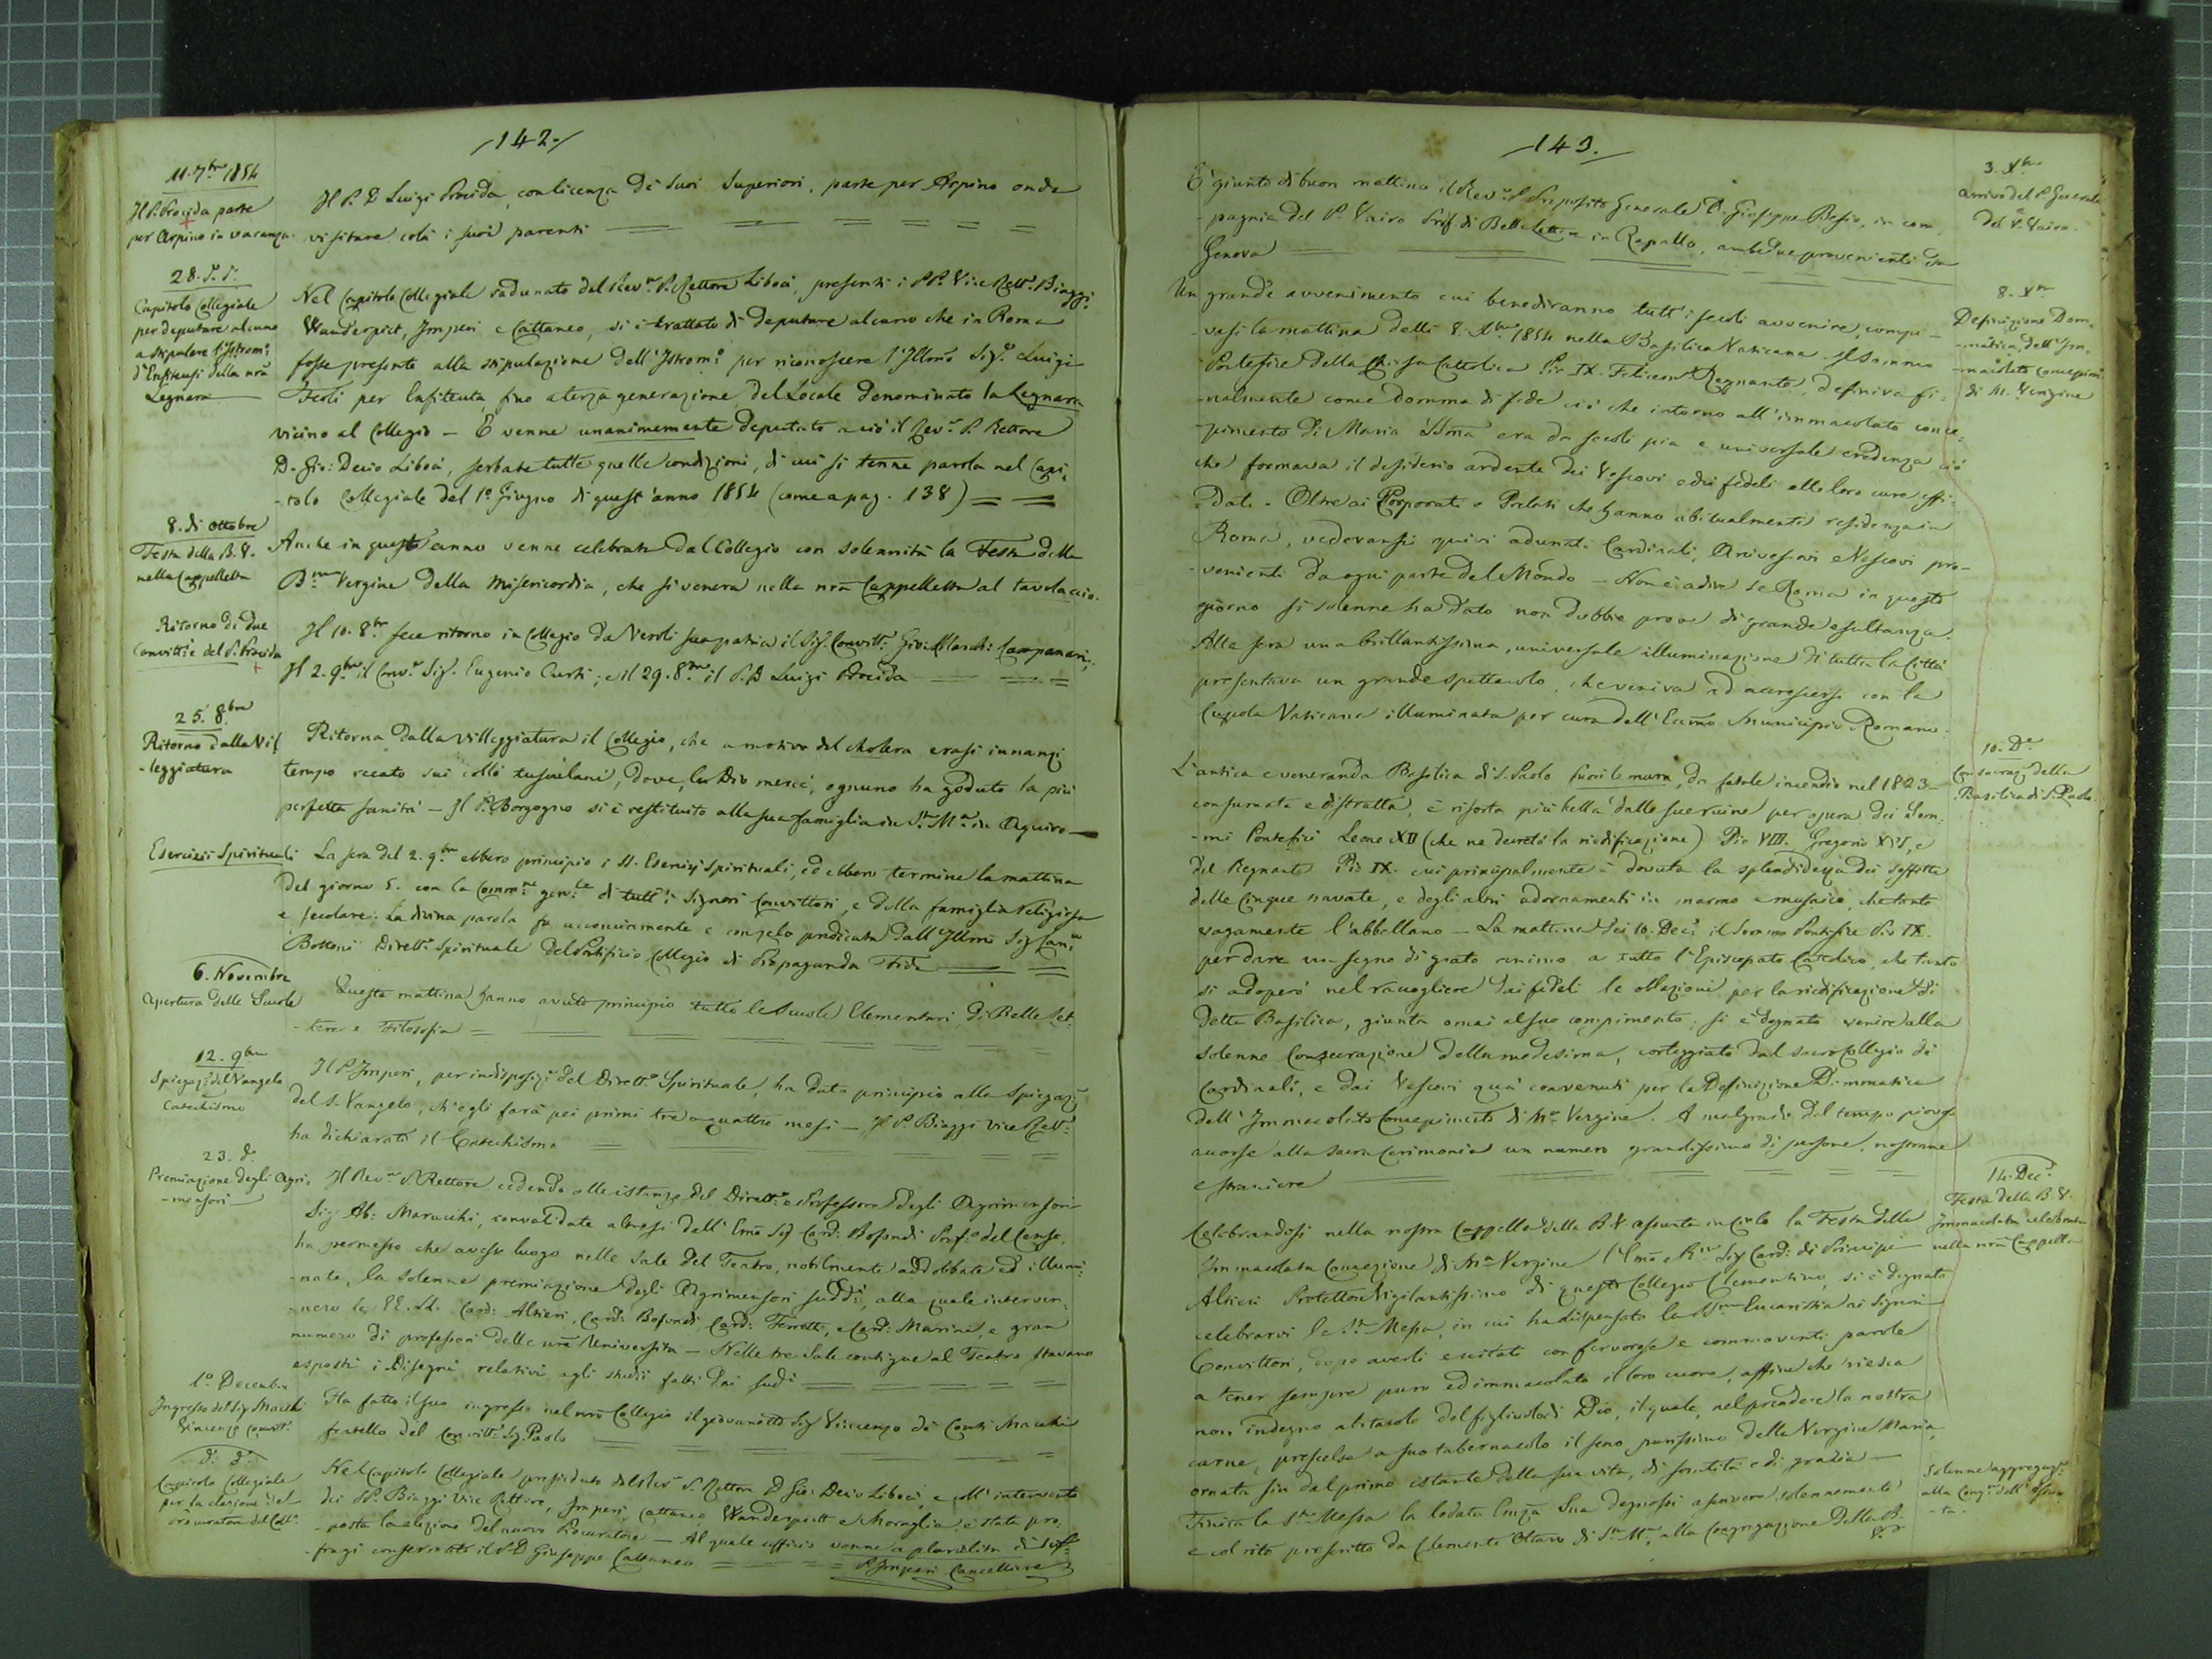 142.
11. 7bre 1854
Il P. Procida parte
per Arpino in vacanza.
Il P. D Luigi Procida, con licenza de' suoi Superiori, parte per Arpino onde
visitare colà i suoi parenti
28. d.o d.o
Capitolo Collegiale
per deputare alcuno
a stipulare l'Istrom.o
d'Enfiteusi della nrã
Legnara
Nel Capitolo Collegiale radunato dal Rev.o P. Rettore Libois, presenti i PP. Vice Rett.e Biaggi
Wanderpitt, Imperi e Cattaneo, si è trattato di deputare alcuno che in Roma
fosse presente alla stipulazione dell'Istrom.o per riconoscere l'Illmo Sig.r Luigi
Feoli per Enfiteuta fino a terza generazione del Locale denominato la Legnara
vicino al Collegio – E venne unanimemente deputato a ciò il Rev.o P. Rettore
D. Gio: Decio Libois, serbate tutte quelle condizioni, di cui si tenne parola nel Capi-
-tolo Collegiale del 1.o Giugno di quest'anno 1854 (come a pag. 138)
8. di Ottobre
Festa della B.V.
nella Cappelletta
Anche in quest'anno venne celebrata dal Collegio con solennità la Festa della
B.ma Vergine della Misericordia, che si venera nella nrã Cappelletta al tavolaccio.
Ritorno di due
Convitti e del P. Procida
Il 10. 8bre fece ritorno in Collegio da Veroli sua patria il Sig. Convitt.e Gio: Campanari;
Il 2. 9bre il Conv.e Sig. Eugenio Curti; e il 29. 8bre il P. D Luigi Procida
25. 8bre
Ritorno dalla Vil
-leggiatura
Ritorna dalla villeggiatura il Collegio, che a motivo del cholera erasi innanzi
tempo recato sui colli tusculani, dove, la Dio mercè, ognuno ha goduto la più
perfetta sanità – Il P. Borgogno si è restituito alla sua famiglia in S.ta M.a in Aquiro
Esercizii Spirituali
La sera del 2. 9bre ebbero principio i SS. Esercizj Spirituali, ed ebbero termine la mattina
del giorno 5. con la Comm.ne gen.le di tutt'i Signori Convittori, e della famiglia religiosa
e secolare. La divina parola fu acconciamente e con zelo predicata dall'Illmo Sig Can.co
Bottoni Dirett.e Spirituale del Pontificio Collegio di Propaganda Fide
6. Novembre
Apertura delle Scuole
Questa mattina hanno avuto principio tutte le scuole Elementari, di Belle Let-
-tere e Filosofia
12. 9bre
Spiegaz.e del Vangelo
Catechismo
Il P. Imperi, per indisposiz.e del Dirett.e Spirituale, ha dato principio alla spiegaz.e
del S. Vangelo, ch'egli farà pei primi tre o quattro mesi – Il P. Biaggi Vice Rett.e
ha dichiarato il Catechismo
23. d.o
Premiazione degli Agri-
-mensori
Il Rev.o P. Rettore cedendo alle istanze del Dirett.e e Professore degli Agrimensori
Sig Ab: Marucchi, convalidate altresì dall'Emo Sig Card: Bofondi Pref.o del Censo,
ha permesso che avesse luogo nelle Sale del Teatro, nobilmente addobbate ed illumi-
-nate, la solenne premiazione degli Agrimensori sudd.i, alla quale interven-
-nero le EE. LL. Card: Altieri, Card: Bofondi, Card: Ferretti, e Card: Marini, e gran
numero di professori della nrã Università – Nelle tre Sale contigue al Teatro stavano
esposti i Disegni relativi agli studii fatti dai sud.i
1.o Decembre
Ingresso del Sig Macchi
Vincenzo Convitt.e
Ha fatto il suo ingresso nel nrõ Collegio il giovanetto Sig Vincenzo de' Conti Macchi
fratello del Convitt.e Sig. Paolo
d.o d.o
Capitolo Collegiale
per la elezione del
Procuratore del Coll.o
Nel Capitolo Collegiale presieduto dal Rev.o P. Rettore D Gio: Decio Libois, e coll'intervento
dei PP. Biaggi Vice Rettore, Imperi, Cattaneo, Wanderpitt e Moraglia, è stata pro-
-posta la elezione del nuovo Procuratore – Al quale ufficio venne a pluralità di suf-
-fragi confermato il P. D Giuseppe Cattaneo
P. Imperi Cancelliere
143.
3. Xbre
Arrivo del P. Generale
del P. Vairo.
È giunto di buon mattino il Rev.o P. Preposito Generale D. Giuseppe Besio, in com-
-pagnia del P. Vairo Prof. di Belle Lettere in Rapallo, ambedue provenienti da
Genova
8. Xbre
Definizione Dom-
-matica dell'Im-
-macolato Concepim.
di M. Vergine
Un grande avvenimento cui benediranno tutt'i secoli avvenire, compi-
-vasi la mattina delli 8. Xbre 1854 nella Basilica Vaticana. Il Sommo
Pontefice della Chiesa Cattolica Pio IX. Felicem.e Regnante, definiva fi-
-nalmente come Domma di fede ciò che intorno all'immacolato conce-
-pimento di Maria SSma era da secoli pia e universale credenza, ciò
che formava il desiderio ardente dei Vescovi e dei fedeli alle loro cure affi-
-dati. Oltre ai Porporati e Prelati che hanno abitualmente residenza in
Roma, vedevansi quivi adunati Cardinali, Arcivescovi e Vescovi pro-
-venienti da ogni parte del Mondo – Non è a dire se Roma in questo
giorno sì solenne ha dato non dubbie prove di grande esultanza.
Alla sera una brillantissima, universale illuminazione di tutta la Città
presentava un grande spettacolo, che veniva ad accrescersi con la
Cupola Vaticana illuminata per cura dell'Eccmo Municipio Romano.
10. D.e
Consacraz.e della
Basilica di S. Paolo.
L'antica e veneranda Basilica di S. Paolo fuori le mura, da fatale incendio nel 1823
consumata e distrutta, è risorta più bella dalle sue ruine per opera dei Som-
-mi Pontefici Leone XII (che ne decretò la riedificazione) Pio VIII. Gregorio XVI, e
del Regnante Pio IX. cui principalmente è dovuta la splendidezza dei soffitti
delle cinque navate, e degli altri adornamenti in marmo e musaico, che tanto
vagamente l'abbellano – La mattina dei 10. Dec.e il Sommo Pontefice Pio IX.
per dare un segno di grato animo a tutto l'Episcopato Cattolico, che tanto
si adoperò nel raccogliere dai fedeli le oblazioni per la riedificazione di
detta Basilica, giunta omai al suo compimento, si è degnato venire alla
solenne Consecrazione della medesima, corteggiato dal sacro Collegio di
Cardinali, e dai Vescovi quà convenuti per la Definizione Dommatica
dell'Immacolato Concepimento di M.a Vergine. A malgrado del tempo piovoso
accorse alla sacra Cerimonia un numero grandissimo di persone, nostrane
e straniere
14. Dec.e
Festa della B.V.
Immacolata celebrata
nella nrã Cappella
Celebrandosi nella nostra Cappella della B.V. assunta in Cielo la Festa della
Immacolata Concezione di M.a Vergine l'Emo e Rmo Sig Card: di Principi
Altieri Protettore Vigilantissimo di questo Collegio Clementino, si è degnato
celebrarvi la S.ta Messa, in cui ha dispensato la SS.ma Eucaristia ai Signori
Convittori, dopo averli eccitati con fervorose e commoventi parole
a tener sempre puro ed immacolato il loro cuore, affine che riesca
non indegno abitacolo del figliuolo di Dio, il quale, nel prendere la nostra
carne, prescelse a suo tabernacolo il seno purissimo della Vergine Maria,
ornata fin dal primo istante della sua vita, di santità e di grazia –
Solenne aggregaz.e
alla Cong.ne dell'Assun-
-ta
Finita la S.ta Messa la lodata Emza Sua degnossi ascrivere solennemente
e col rito prescritto da Clemente Ottavo di S.ta M.a, alla Congregazione della B.